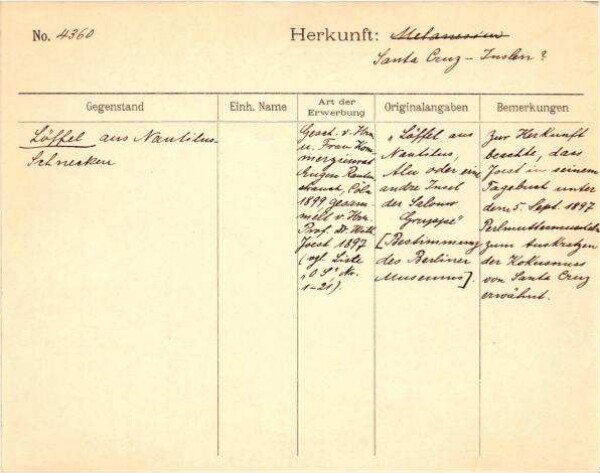 No. 4360
Herkunft: Melanesien
Santa Cruz - Inseln?
Gegenstand
Einh. Name
Art der Erwerbung
Originalangaben
Bemerkungen
Löffel aus Nautilus-
Schnecken
Gesch. v. Hrn
u. Frau Kom-
merzienrat
Eugen Rauten-
strauch, Cöln
1899 gesam-
melt v. Hrn.
Prof. Dr. Wilh.
Joest 1897
(vgl. Liste
"O S", No.
1-21).
"Löffel aus
Nautilus,
Alu oder ein
andre Insel
der Salomo
Gruppe"
[Bestimmung
des Berliner
Museums].
Zur Herkunft
beachte, dass
Joest in seinem
Tagebuch unter
dem 5. Sept. 1897
zum Auskratzen
der Kokosnuss
von Santa Cruz
erwähnt.